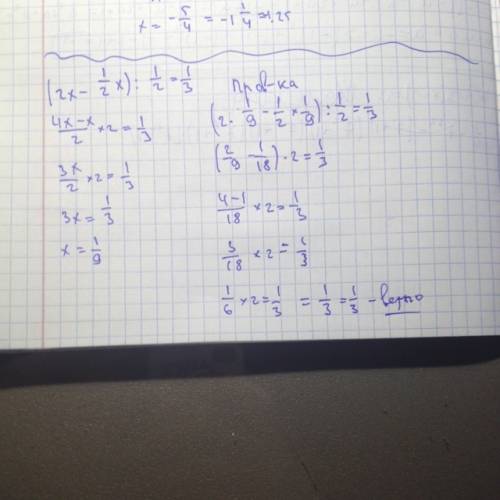 x = -5/4 = -1 1/4 = 1.25
(2x - 1/2 x) : 1/2 = 1/3
(4x-x)/2 × 2 = 1/3
3x/2 × 2 = 1/3
3x = 1/3
x = 1/9
Пров-ка
(2 · 1/9 - 1/2 × 1/9) : 1/2 = 1/3
(2/9 - 1/18) · 2 = 1/3
(4-1)/18 × 2 = 1/3
3/18 × 2 = 1/3
1/6 × 2 = 1/3 = 1/3 = 1/3 - верно